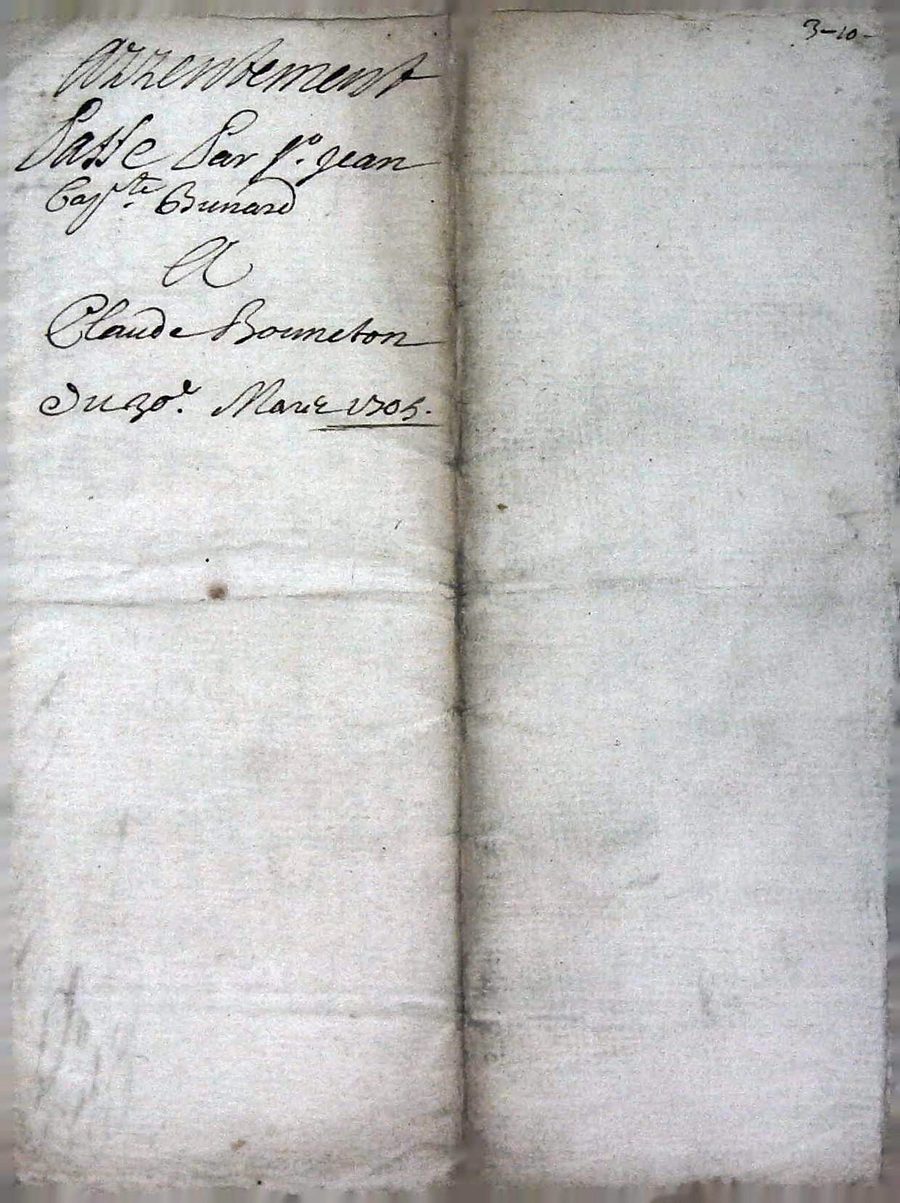 3-10-
Arrentement
Passé Par Sr. jean
Bapte. Bunard
A
Claude Bonneton
Du 30e. Mars 1705.